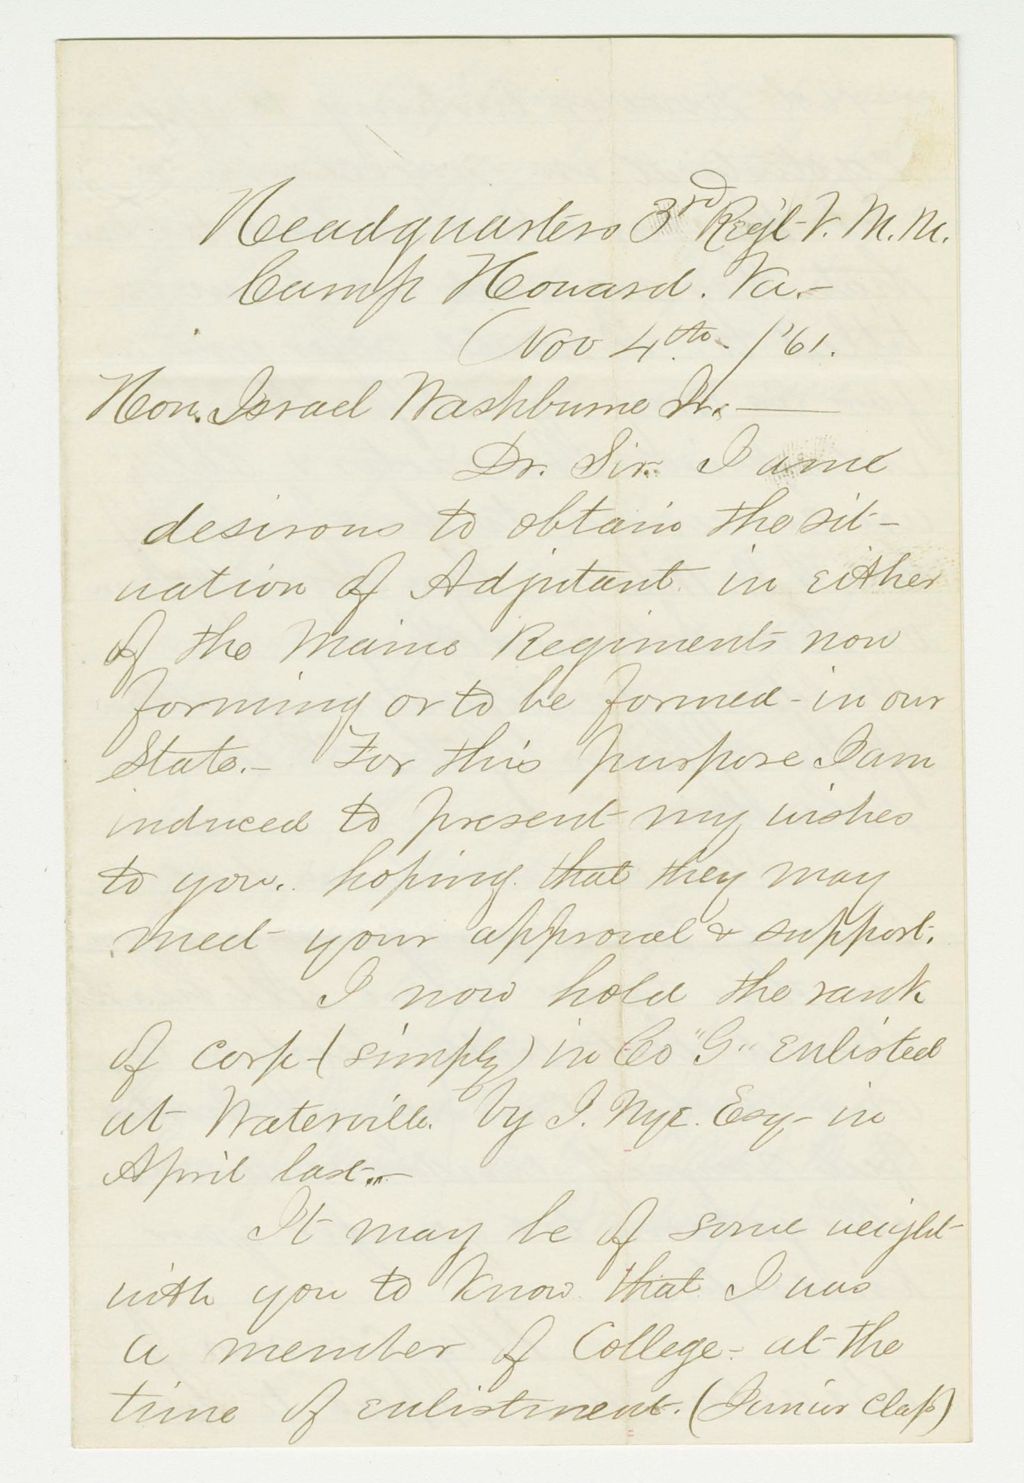 Headquarters 3rd Reg't V. M. M.
Camp Howard. Va.-
Nov 4th - /'61.
Hon. Israel Washburne Jr. —
Dr. Sir. I am
desirous to obtain the sit-
uation of Adjutant in either
of the Maine Regiments now
forming or to be formed - in our
State. - For this purpose I am
induced to present my wishes
to you.. hoping that they may
meet your approval & support.
I now hold the rank
of corp - (simply) in Co "G" enlisted
at Waterville. by J. Nye. Esq - in
April last. -
It may be of some weight
with you to know that I was
a member of College - at the
time of enlistment. (Junior Class)